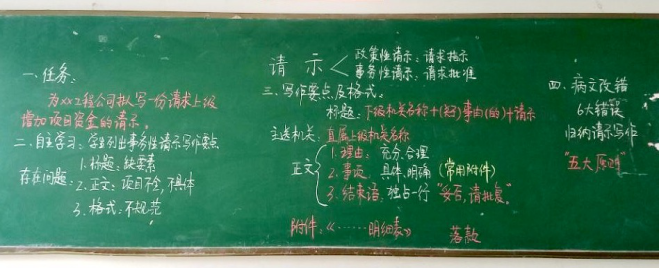 请示
政策性请示：请求指示
事务性请示：请求批准
一、任务：
为xx工程公司拟写一份请求上级
增加项目资金的请示。
二、自主学习：学生列出事务性请示写作要点
存在问题：
1.标题：缺要素
2.正文：项目不全，不具体
3.格式：不规范
三、写作要点及格式。
标题：下级机关名称+(关)事由(的)+请示
主送机关：直属上级机关名称
正文
1.理由：充分、合理
2.事项：具体、明确（常用附件）
3.结束语：独占一行 "妥否，请批复。"
附件：《……明细表》
落款
四、病文改错
6大错误
归纳请示写作
"五大原则"